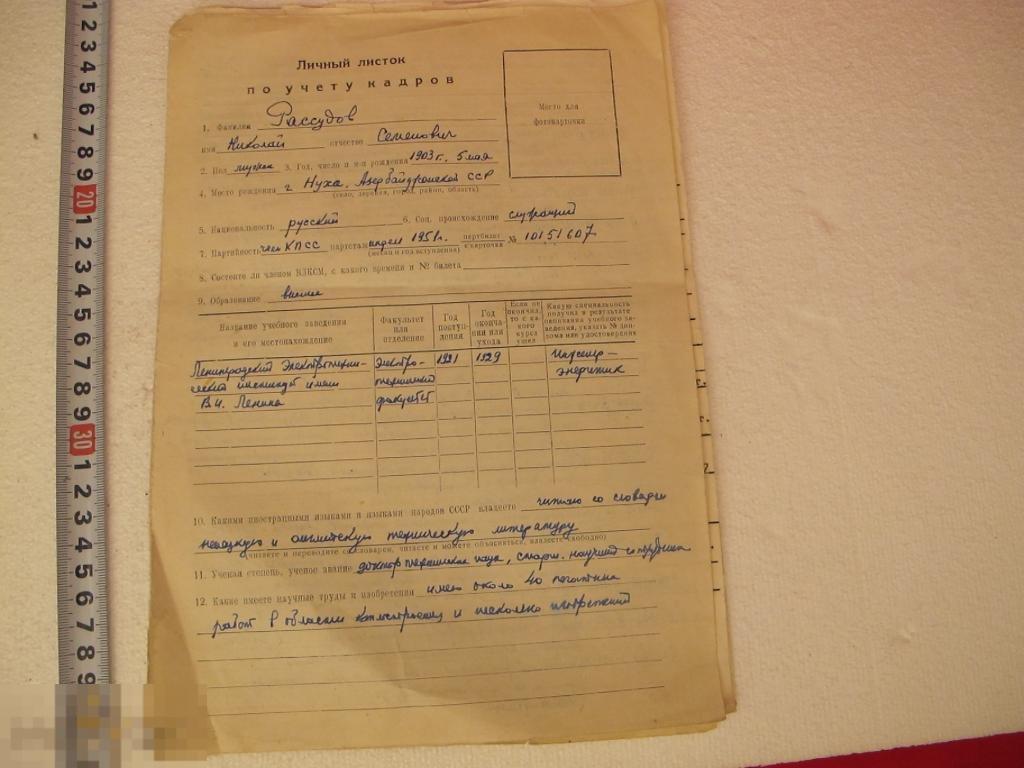 Личный листок
по учету кадров
Место для
фотокарточки
1. Фамилия Рассудов
имя Николай отчество Семенович
2. Пол мужск 3. Год, число и м-ц рождения 1903 г., 5 мая
4. Место рождения г Нуха, Азербайджанской ССР
(село, деревня, город, район, область)
5. Национальность русский 6. Соц. происхождение служащий
7. Партийность член КПСС партстаж 1951г. партбилет № 10151607
(месяц и год вступления) к/карточка
8. Состоите ли членом ВЛКСМ, с какого времени и № билета
9. Образование высшее
Название учебного заведения и его местонахождение
Факультет или отделение
Год поступления
Год окончания или ухода
Если не окончил, то с какого курса ушел
Какую специальность получил в результате окончания учебного заведения, указать № диплома или удостоверения
Ленинградский Электротехни- Электро- 1921 1929 Инженер-
ческий институт имени технический энергетик
В.И. Ленина факультет
10. Какими иностранными языками и языками народов СССР владеете читаю со словарем
немецкую и английскую техническую литературу
(читаете и переводите со словарем, читаете и можете объясняться, владеете свободно)
11. Ученая степень, ученое звание доктор технических наук, старш. научный сотрудник
12. Какие имеете научные труды и изобретения имею около 40 печатных
работ в области и несколько изобретений
1 2 3 4 5 6 7 8 9 20 1 2 3 4 5 6 7 8 9 30 1 2 3 4 5 6 7 8 9